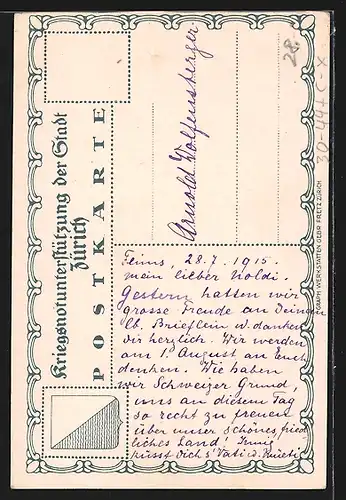 Kriegsnotunterstützung der Stadt
Zürich
POSTKARTE
Arnold Wolfensberger
28.
30-44+C-X
GRAPH. WERKSTÄTTEN GEBR. FRETZ ZÜRICH
Flims, 28.7.1915.
Mein lieber Noldi.
Gestern hatten wir
grosse Freude an Deinem
lb. Brieflein u. danken
dir herzlich. Wir werden
am 1. August an Euch
denken. Wie haben
wir Schweizer Grund,
uns an diesem Tag
so recht zu freuen
über unser schönes, fried
liches Land! Innig
küsst Dich s' Vati u.